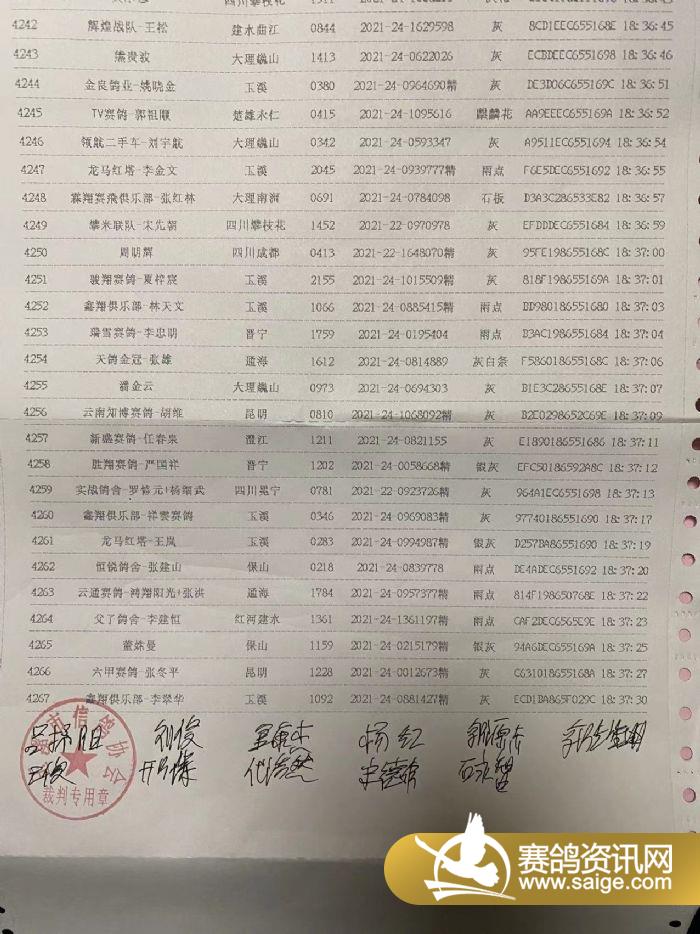 4242 辉煌战队-王松 建水曲江 0844 2021-24-1629598 灰 8CD1EEC655168E 18:36:45
4243 熊贵波 大理巍山 1413 2021-24-0622026 灰 ECBDEEC655169E 18:36:46
4244 金良鸽业-姚晓金 玉溪 0380 2021-24-0964690精 灰 DE3D06C655169C 18:36:51
4245 TV赛鸽-郭祖顺 楚雄永仁 0415 2021-24-1095616 麒麟花 AA9EEEC655169A 18:36:52
4246 领航二手车-刘宇航 大理巍山 0342 2021-24-0593347 灰 A9511EC6551694 18:36:54
4247 龙马红塔-李金文 玉溪 2045 2021-24-0939777精 雨点 F6E5DEC6551692 18:36:55
4248 霖翔赛飛俱乐部-张红林 大理南涧 0691 2021-24-0784098 石板 D3A3C286533E82 18:36:57
4249 攀米联队-宋先朝 四川攀枝花 1452 2021-22-0970978 灰 EFDDDEC6551684 18:36:59
4250 周明辉 四川成都 0413 2021-22-1648070精 灰 95FE198655168C 18:37:00
4251 骏翔赛鸽-夏梓宸 玉溪 2155 2021-24-1015509精 灰 818F198655169A 18:37:01
4252 鑫翔俱乐部-林天文 玉溪 1066 2021-24-0885415精 雨点 BD980186551680 18:37:03
4253 瑞雪赛鸽-李忠明 晋宁 1759 2021-24-0195404 雨点 D3AC1986551684 18:37:04
4254 天鸽金冠-张雄 通海 1612 2021-24-0814889 灰白条 F586018655168C 18:37:06
4255 潘金云 大理巍山 0973 2021-24-0694303 灰 B1E3C28655168E 18:37:07
4256 云南知博赛鸽-胡维 昆明 0810 2021-24-1068092精 灰 B2E0298652C69E 18:37:09
4257 新璐赛鸽-任春泉 澄江 1211 2021-24-0821155 灰 E1890186551686 18:37:11
4258 胜翔赛鸽-严国祥 晋宁 1202 2021-24-0058668精 银灰 EFC50186592A8C 18:37:12
4259 实战鸽舍-罗修元+杨绍武 四川冕宁 0781 2021-22-0923726精 灰 964A1EC6551698 18:37:13
4260 鑫翔俱乐部-祥雲赛鸽 玉溪 0346 2021-24-0969083精 灰 97740186551690 18:37:17
4261 龙马红塔-王岚 玉溪 0283 2021-24-0994987精 银灰 D257BA86551690 18:37:19
4262 恒锐鸽舍-张建山 保山 0218 2021-24-0839778 雨点 DE4ADEC6551692 18:37:20
4263 云通赛鸽-鸿翔阳光+张洪 通海 1784 2021-24-0957377精 雨点 814F198650768E 18:37:22
4264 父子鸽舍-李建恒 红河建水 1361 2021-24-1361197精 雨点 CAF2DEC6565E9E 18:37:23
4265 董姝曼 保山 1159 2021-24-0215179精 银灰 94A6DEC655169A 18:37:25
4266 六甲赛鸽-张冬平 昆明 1228 2021-24-0012673精 灰 C631018655168A 18:37:27
4267 鑫翔俱乐部-李翠华 玉溪 1092 2021-24-0881427精 灰 ECD1BA865F029C 18:37:30
信鸽协会
刘俊 杨红
裁判专用章
赛鸽资讯网
www.saige.com